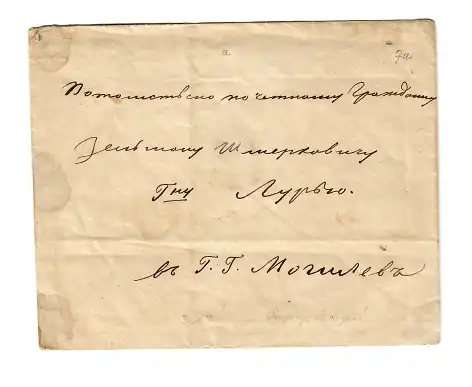 а 7а
Потомственно почетному Гражданину
Шмерковичу
Гну Лурью.
въ Г. Г. Могилевъ